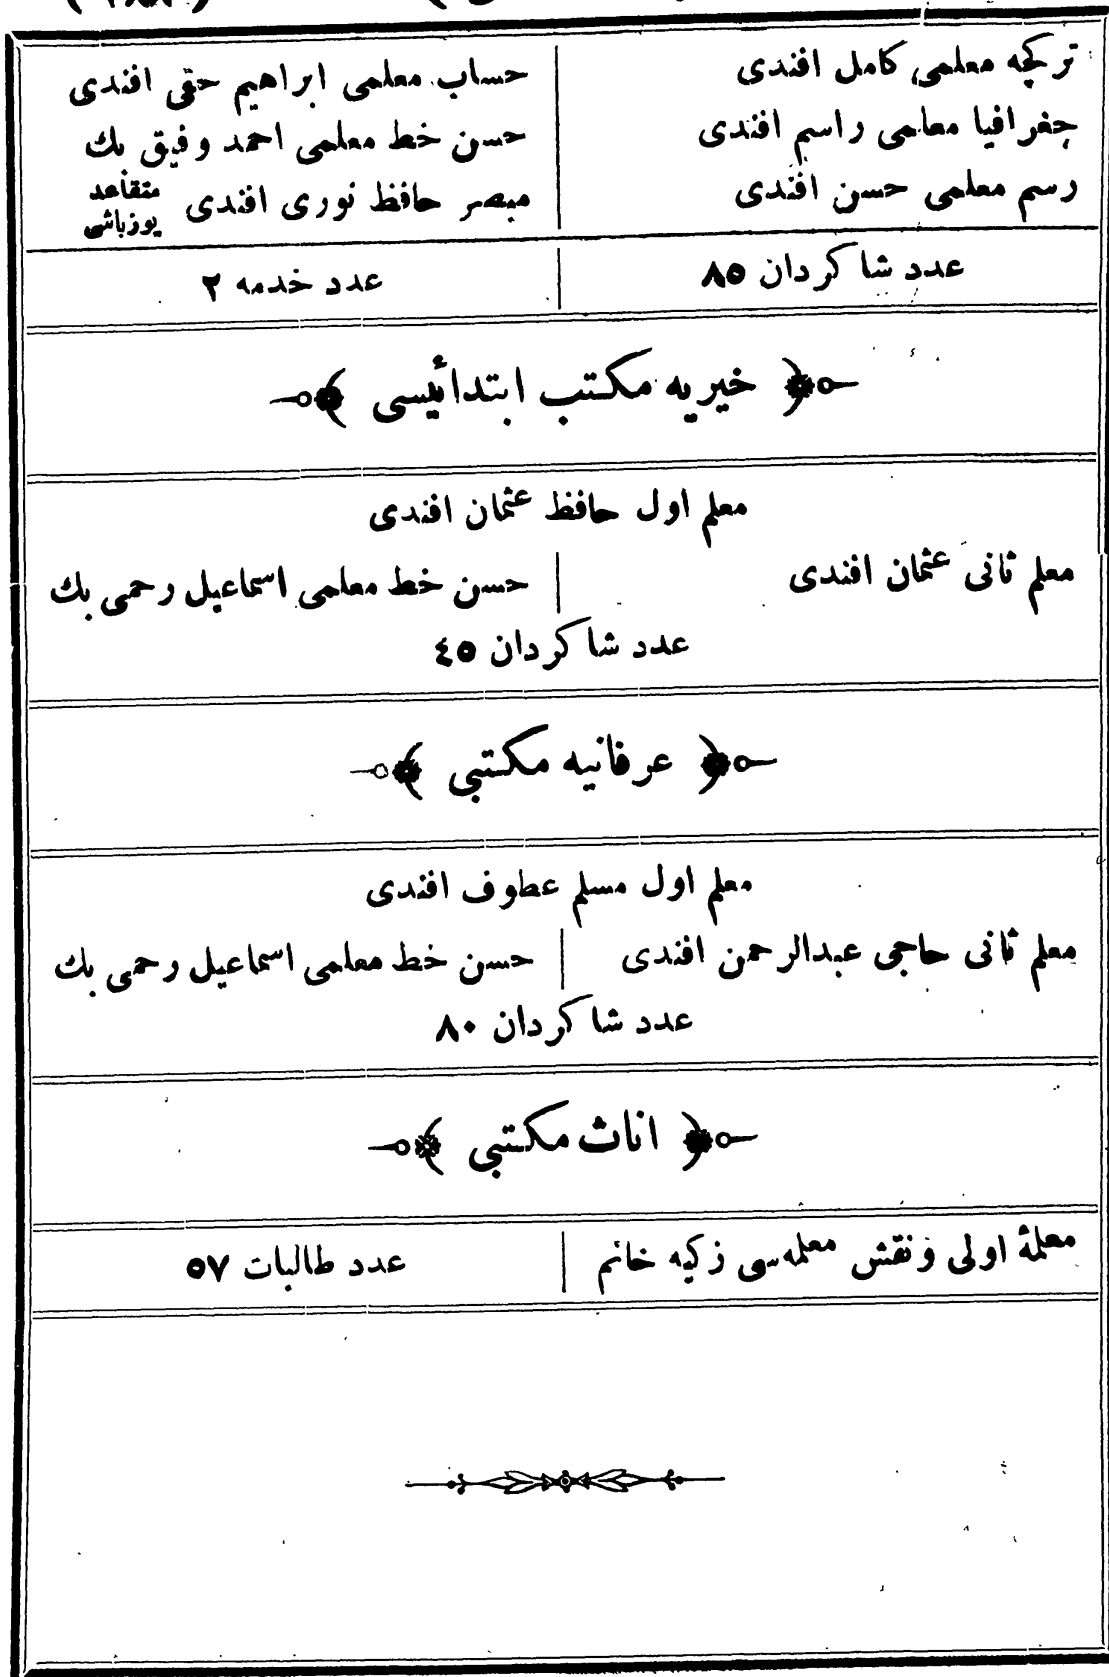 تركجه معلمی كامل افندی
جغرافيا معلمی راسم افندی
رسم معلمی حسن افندی
حساب معلمی ابراهيم حقی افندی
حسن خط معلمی احمد وفيق بك
مبصر حافظ نوری افندی متقاعد يوزباشی
عدد شاكردان ٨٥
عدد خدمه ٢
خيريه مكتب ابتدائيسی
معلم اول حافظ عثمان افندی
معلم ثانی عثمان افندی
حسن خط معلمی اسماعيل رحمی بك
عدد شاكردان ٤٥
عرفانيه مكتبی
معلم اول مسلم عطوف افندی
معلم ثانی حاجی عبدالرحمن افندی
حسن خط معلمی اسماعيل رحمی بك
عدد شاكردان ٨٠
اناث مكتبی
معلمۀ اولی و نقش معلمه‌سی زكيه خانم
عدد طالبات ٥٧